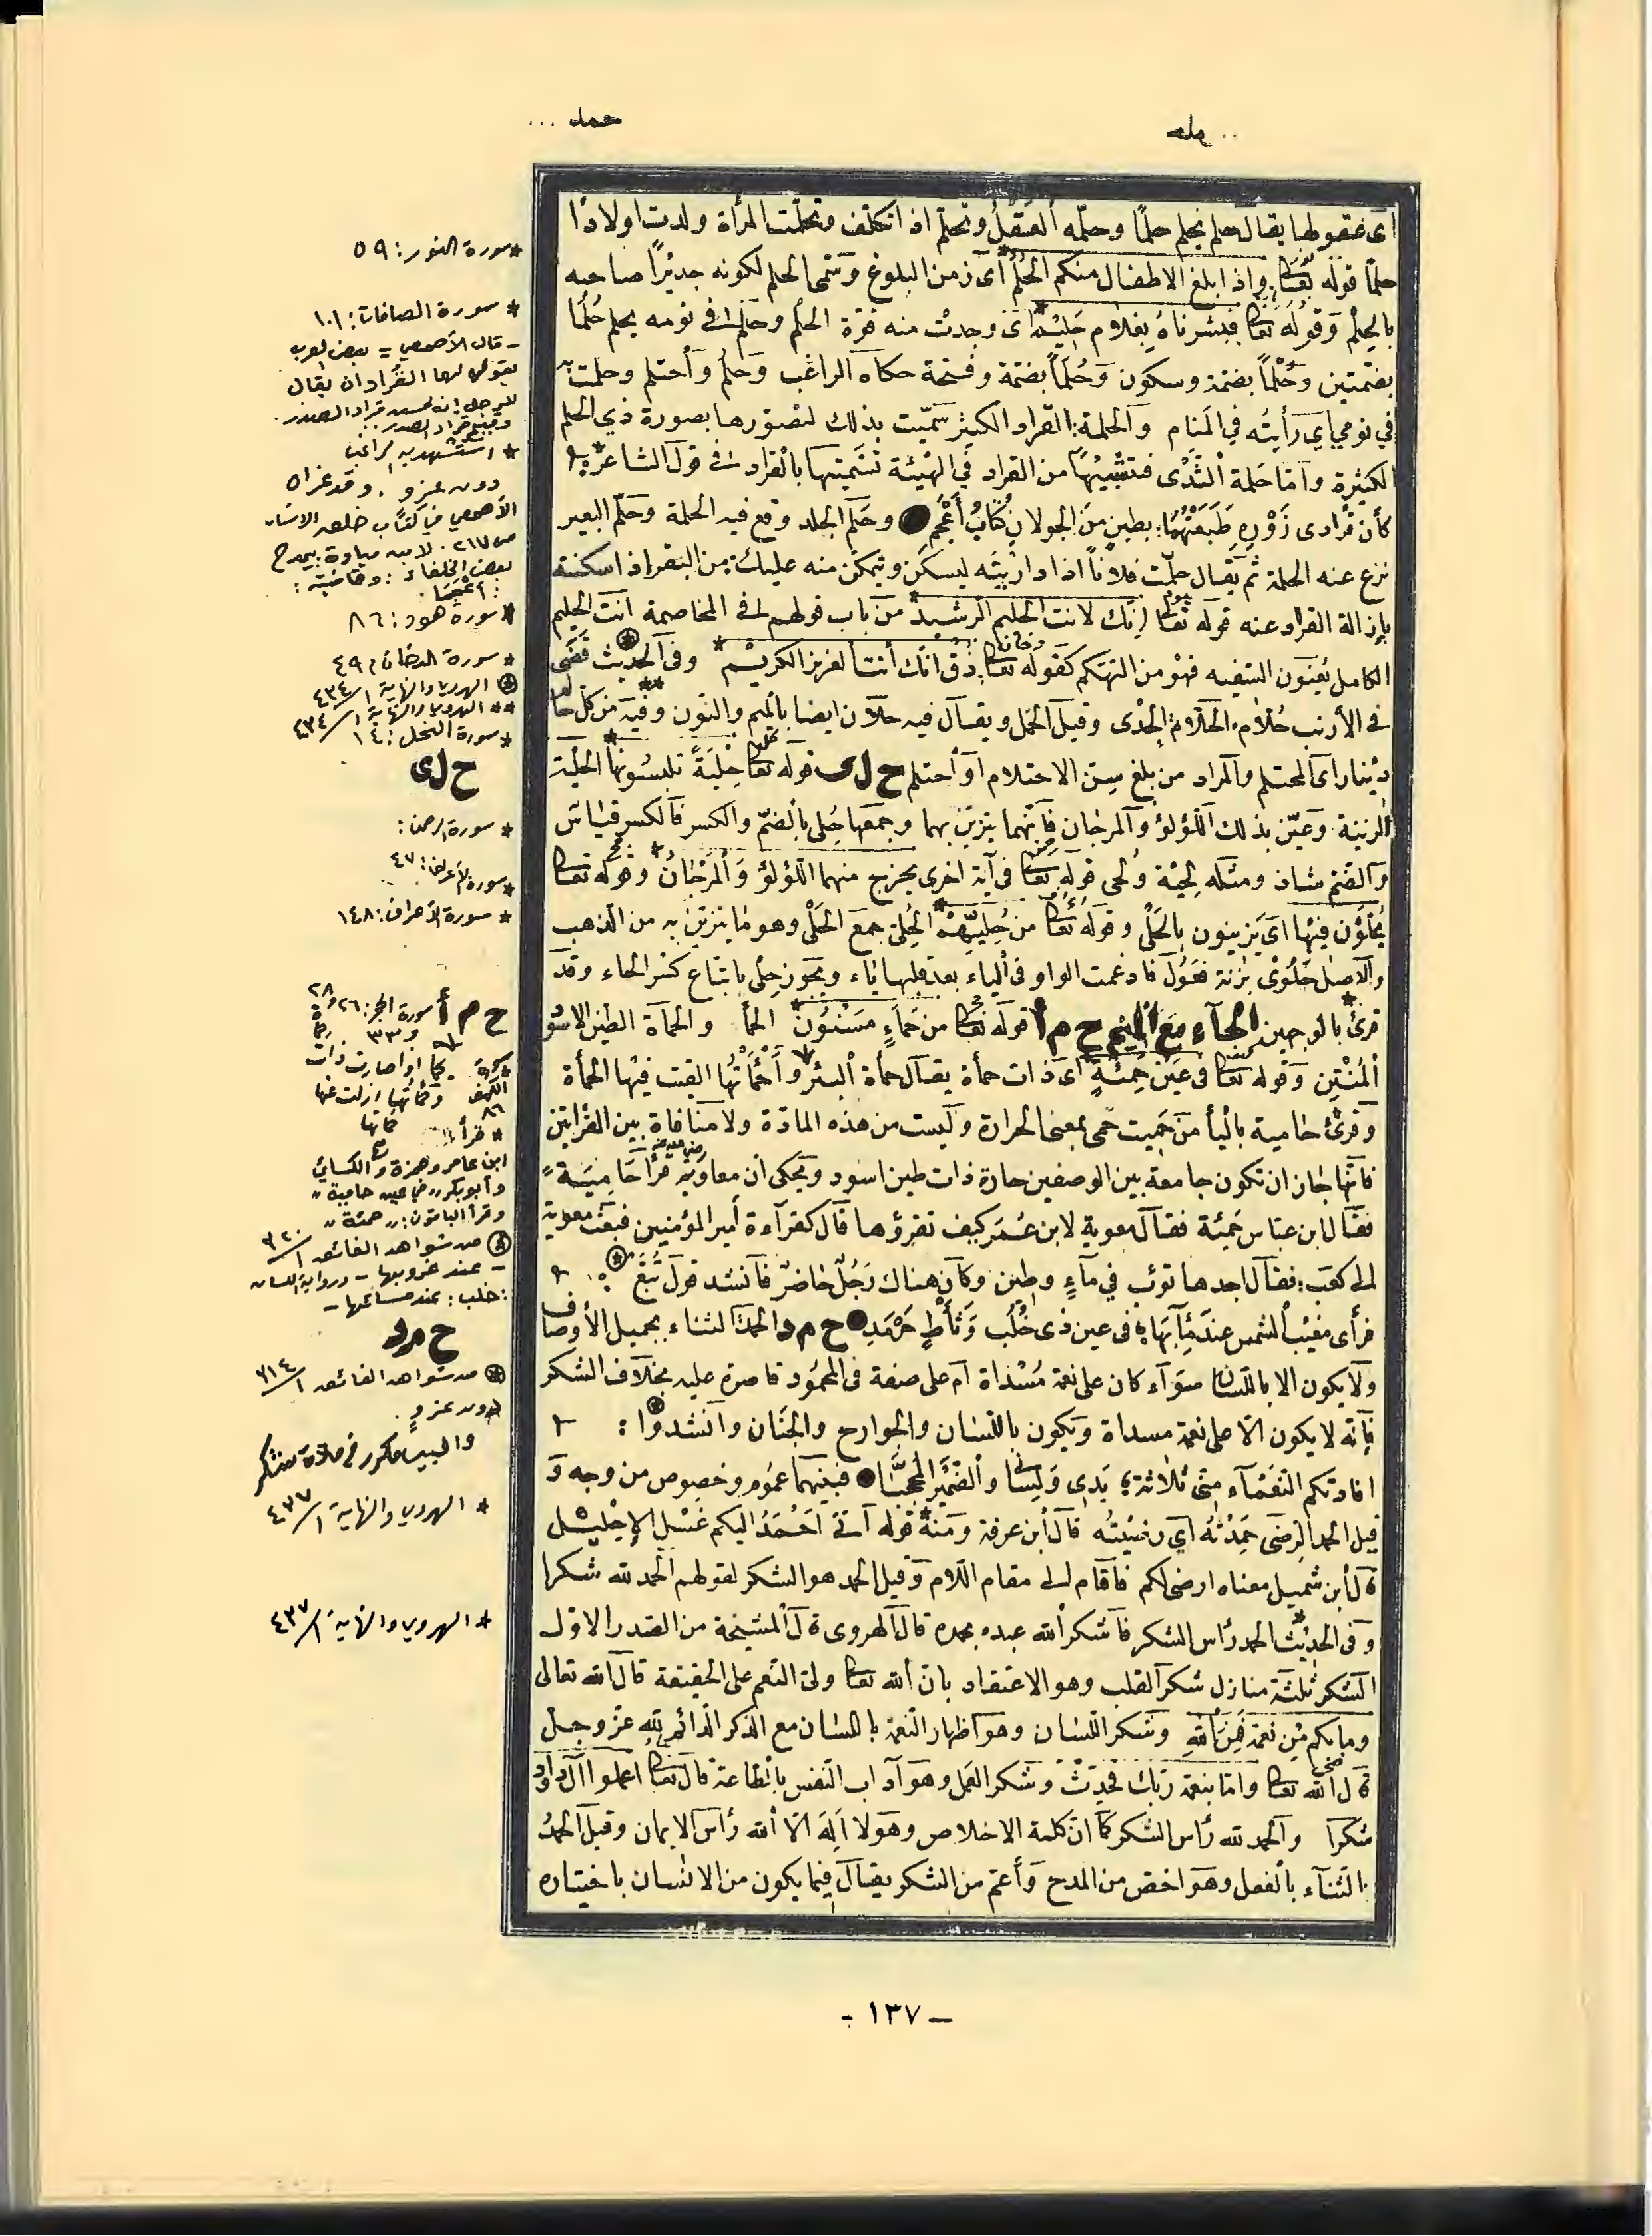 حلم
حمد ...
اى عقولها يقال حلم يحلم حلمًا وحلّمه العقلُ وتحلّم اذا تكلّف وتحلّمت المرأة ولدت اولادًا
حلمًا قوله تعالى واذا بلغ الاطفال منكم الحُلُمَ اى زمن البلوغ وسمى الحلم لكونه جديرًا صاحبه
بالحِلم وقوله تعالى فبشرناهُ بغلام حَليم اى وجدتْ منه قوّة الحلم وحلم فى نومه يحلم حُلُمًا
بضمّتين وحُلْماً بضمة وسكون وحُلَماً بضمّة وفتحة حكاه الراغب وحلم واحتلم وحلمت به
فى نومي اي رأيتُه في المنام والحلمة القراد الكبير سمّيت بذلك لتصوّرها بصورة ذي الحلم
لكثرة وامّا حَلمة الثدْى فتشبيهًا من القراد فى الهيئة تسميتها بالقراد فى قول الشاعر
كأن قرادى زَوْرِهِ طَبَعَتْهُما بطينٍ من الجولان كُتّابُ أَعْجُمِ وحَلِم الجلد وقع فيه الحلمة وحَلّم البعير
نزع عنه الحلمة ثم يقال حلّمت فلاناً اذا داريتَه ليسكن وتمكن منه عليك من البعير اذا سكنته
بازالة القراد عنه قوله تعالى انّك لانت الحليم الرشيد من باب قولهم فى المخاصمة انت الحليم
الكامل يعنون السّفيه فهو من التهكم كقوله تعالى ذق انّك أنت العزيز الكريم وفى الحديث قضى
فى الأرنب حُلّام الحلّام الجدْى وقيل الحمل ويقال فيه حلّان ايضا بالميم والنون وفيه من كل حالم
دينارا اى المحتلم والمراد من بلغ سِنّ الاحتلام او احتلم ح ل ى قوله تعالى حِلْيَةً تلبسُونها الحلية
الزينة وعيّن بذلك اللؤلؤ والمرجان فانهما يتزيّن بهما وجمعها حُلى بالضمّ والكسر فالكسر قياس
والضم شاذ ومثله لِحْية ولُحى قوله تعالى فى آية اخرى يخرج منهما اللؤلؤ وَالمَرْجانُ وقوله تعالى
يُحَلَّوْن فيها اى يزينون بالحَلْى وقوله تعالى من حُليّهِمْ الحُلىّ جمع الحَلْى وهو ما يتزيّن به من الذهب
والاصل حُلُوْى بزنة فعُوْل فادغمت الواو فى الياء بعد قلبها ياء ويجوز حِلى باتباع كسر الحاء وقد
قرئ بالوجهين الحاء مع الميم ح م أ قوله تعالى من حَمَاءٍ مَسْنُون الحمأ والحمأة الطين الاسود
المُنتِن وقوله تعالى فى عَيْن حَمِئَةٍ اى ذات حمأة يقال حمأة البئر وأحمَأتُها القيت فيها الحمأة
وقرئ حامية بالياء من حَمِيت حَمى بمعنى الحرارة وليست من هذه المادّة ولا منافاة بين القراءتين
فانها جاز ان تكون جامعة بين الوصفين حارة ذات طين اسود ويحكى ان معاوية قرأ حَامِيَة
فقال ابن عباس حَمِئة فقال معوية لابن عُمَر كيف تقرؤها قال كقراءة أمير المؤمنين فبعث معوية
الى كعب فقال اجدها تغرب في ماءٍ وطين وكان هناك رَجُلٌ حاضرٌ فانشد قول تُبَّعٍ
فرأى مغيْبَ الشمس عند مَآبَهَا فى عين ذى خُلُبٍ وَثأطٍ حَرْمَدِ ح م د الحمد الثناء بجميل الأوصاف
ولا يكون الا باللسان سواء كان على نعمة مُسْداة ام على صفة فى المحمُود قاصرة عليه بخلاف الشكر
فإنّه لا يكون الّا على نعمة مسداة ويكون باللسَان والجوارح والجَنان وانشدوا :
افادتكم النّعْمآء منّى ثلاثةً يَدِى وَلِسَانى والضَّمِيْر المُحَجَّبا فبينهما عمُوم وخصوص من وجه و
قيل الحمد الرضى حَمِدْتُهُ اي رضيْتُه قال ابن عرفة ومنه قوله آتى احْمَدُ اليكم غَسْلَ الإحْلِيْل
قال ابن شميل معناه ارضى لكم فاقام الى مقام اللام وقيل الحمد هو الشكر لقولهم الحمد لله شكرا
وفى الحديث الحمد رأس الشكر فاشكر الله عبده بحمده قال الهروى قال المشيخة من الصدر الاول
الشكر ثلثة منازل شكر القلب وهو الاعتقاد بان الله تعالى ولىّ النعم على الحقيقة قال الله تعالى
وما بكم مِن نعمة فَمِنَ اللهِ وشكر اللسان وهو اظهار النعمة باللسان مع الذكر الدائم لله عزّ وجلّ
قال الله تعالى وامّا بنعمة رَبّك فحدّثْ وشكر العمل وهو آداب النفس بالطاعة قال تعالى اعملوا آل داود
شكرًا والحمد لله رأس الشكر كما ان كلمة الاخلاص وهو لا اِلهَ الّا الله رأس الايمان وقيل الحمدُ
الثناء بالفعل وهو اخصّ من المدح وأعمّ من الشكر يقال فيما يكون من الانسان باختياره
* سورة النور: ٥٩
* سورة الصافات: ١٠١
- قال الأصمعي = بعض العرب
يقولها لها القراد ان يقال
للرجل: انه لحسن قراد الصدر.
وقبيح قراد الصدر.
* استشهد به الراغب
دون عزو. وقد عزاه
الأصمعي في كتاب خلق الانسان
ص ٢١٧. لابن ميادة يمدح
بعض الخلفاء: وقافيته:
: أعْجَما.
* سورة هود: ٨٦
* سورة الدخان: ٤٩
* الهروي والنهاية ١/٤٣٤
** الهروي والنهاية ١/٤٣٤
* سورة النحل: ١٤
ح ل ى
* سورة الرحمن:
* سورة الأعراف: ٤٧
* سورة الأعراف: ١٤٨
ح م أ
* سورة الحجر: ٢٦ و ٢٨
و ٣٣
* سورة الكهف ٨٦
* قرأ
ابن عامر وحمزة والكسائي
وأبو بكر "في عين حامية"
وقرأ الباقون: "حمئة"
* من شواهد الفائق ١/٣٢٠
- عند غروبها - ورواية اللسان
: خلب: عند مسائها -
ح م د
* من شواهد الفائق ١/٣١٤
دون عزو.
والبيت مكرر في مادة شكر
* الهروي والنهاية ١/٤٣٧
* الهروي والنهاية ١/٤٣٧
- ١٣٧ -